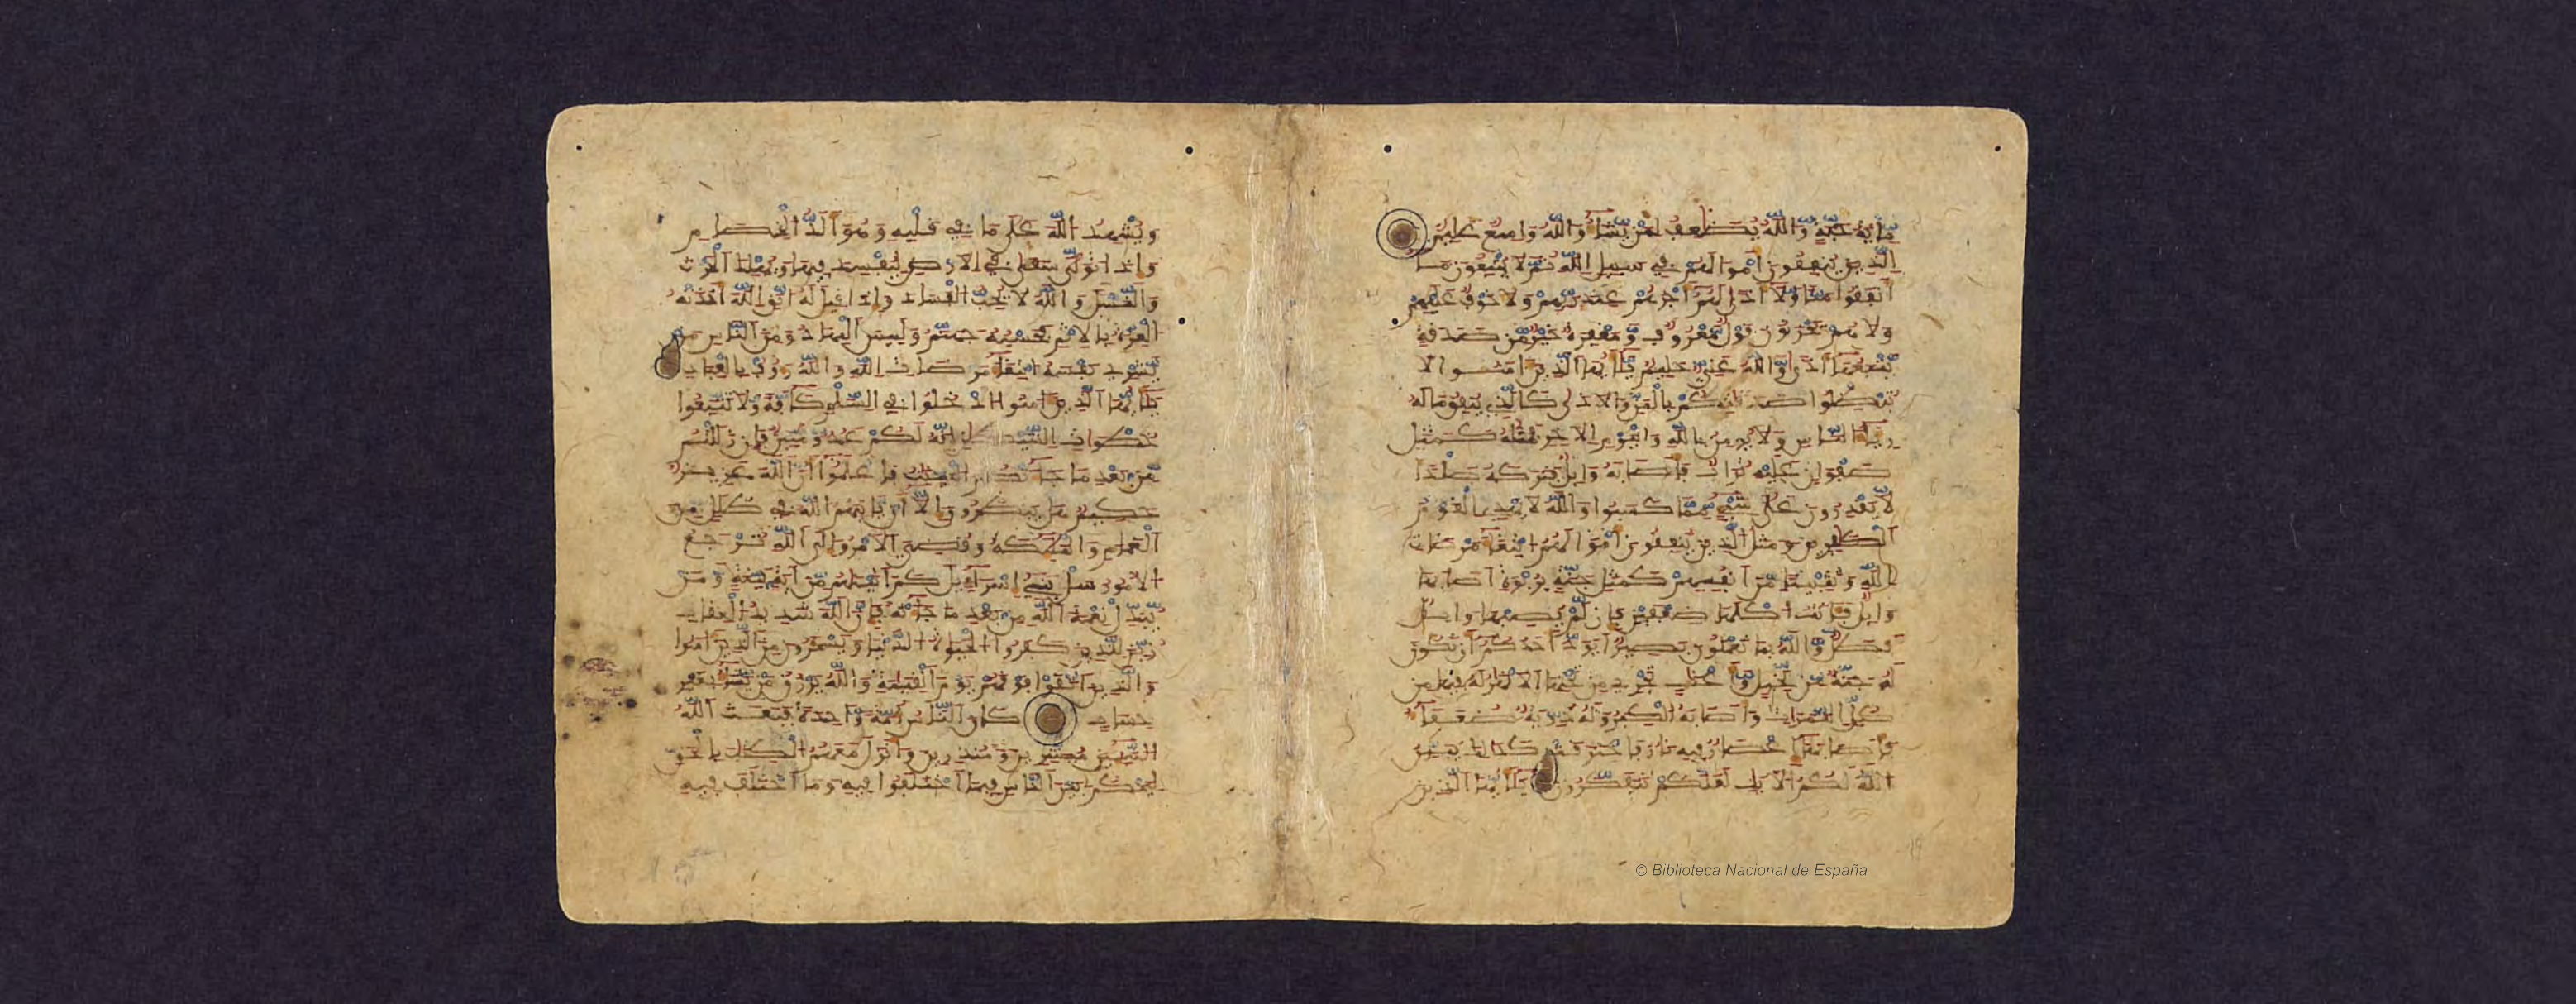 مّاْئة حبة والله يضعف لمن يشاء والله واسع عليم
الذين ينفقون أموالهم في سبيل الله ثم لا يتبعون ما
أنفقوا منا ولا أذى لهم أجرهم عند ربهم ولا خوف عليهم
ولا هم يحزنون قول معروف ومغفرة خير من صدقة
يتبعها أذى والله غني حليم يأيها الذين ءامنوا لا
تبطلوا صدقتكم بالمن والاذى كالذي ينفق ماله
رئاء الناس ولا يومن بالله واليوم الاخر فمثله كمثل
صفوان عليه تراب فأصابه وابل فتركه صلدا
لا يقدرون على شيء مما كسبوا والله لا يهدي القوم
الكفرين ومثل الذين ينفقون أموالهم ابتغاء مرضات
الله وتثبيتا من أنفسهم كمثل جنة بربوة أصابها
وابل فاتت اكلها ضعفين فإن لم يصبها وابل
فطل والله بما تعملون بصير أيود أحدكم أن تكون
له جنة من نخيل وأعناب تجري من تحتها الانهر له فيها من
كل الثمرات وأصابه الكبر وله ذرية ضعفاء
فأصابها إعصار فيه نار فاحترقت كذلك يبين
الله لكم الايت لعلكم تتفكرون يأيها الذين
ويشهد الله على ما في قلبه وهو ألد الخصام
وإذا تولى سعى في الارض ليفسد فيها ويهلك الحرث
والنسل والله لا يحب الفساد وإذا قيل له اتق الله أخذته
العزة بالاثم فحسبه جهنم ولبيس المهاد ومن الناس من
يشري نفسه ابتغاء مرضات الله والله رءوف بالعباد
يأيها الذين ءامنوا ادخلوا في السلم كافة ولا تتبعوا
خطوات الشيطن إنه لكم عدو مبين فإن زللتم
من بعد ما جاءتكم البينت فاعلموا أن الله عزيز
حكيم هل ينظرون إلا أن ياتيهم الله في ظلل من
الغمام والملئكة وقضي الامر وإلى الله ترجع
الامور سل بني إسراءيل كم ءاتينهم من ءاية بينة ومن
يبدل نعمة الله من بعد ما جاءته فإن الله شديد العقاب
زين للذين كفروا الحيوة الدنيا ويسخرون من الذين ءامنوا
والذين اتقوا فوقهم يوم القيمة والله يرزق من يشاء بغير
حساب كان الناس أمة واحدة فبعث الله
النبيين مبشرين ومنذرين وأنزل معهم الكتب بالحق
ليحكم بين الناس فيما اختلفوا فيه وما اختلف فيه
© Biblioteca Nacional de España